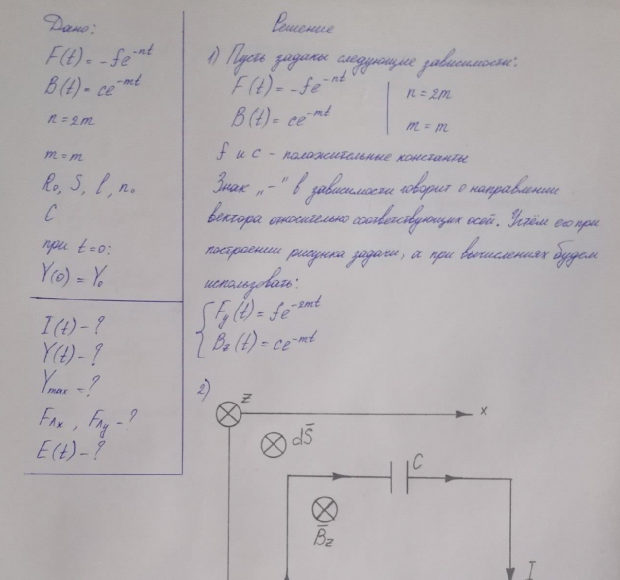 Дано:
F(t) = -fe^-nt
B(t) = ce^-mt
n = 2m
m = m
R₀, S, l, n₀
C
при t=0:
Y(0) = Y₀
I(t) - ?
Y(t) - ?
Ymax = ?
FΛx, FΛy - ?
E(t) - ?
Решение
1) Пусть заданы следующие зависимости:
F(t) = -fe^-nt
n = 2m
B(t) = ce^-mt
m = m
f и c - положительные константы
Знак „-" в зависимости говорит о направлении
вектора относительно соответствующих осей. Учтём его при
построении рисунка задачи, а при вычислениях будем
использовать:
Fy(t) = fe^-2mt
Bz(t) = ce^-mt
2)
z̄
x
dS̄
C
B̄z
I